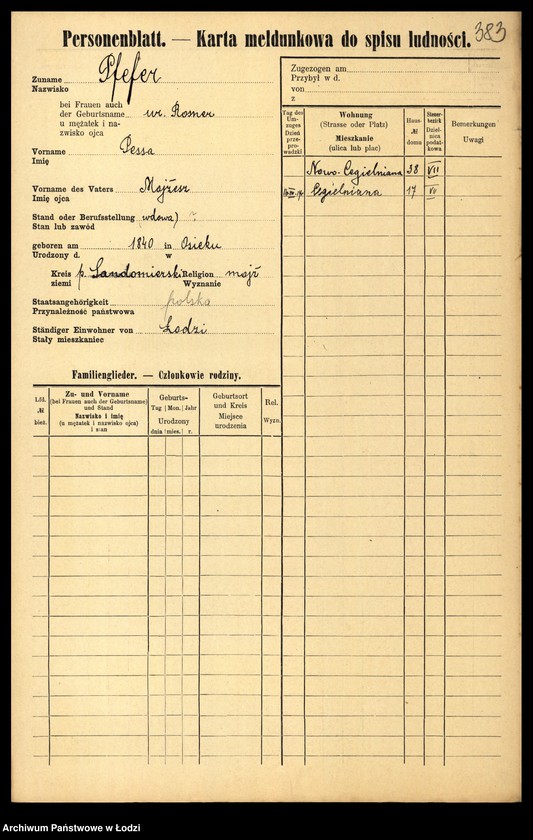 383
Personenblatt. — Karta meldunkowa do spisu ludności.
Zuname Pfefer
Nazwisko
bei Frauen auch
der Geburtsname ur. Rosner
u mężatek i na-
zwisko ojca
Vorname Pessa
Imię
Vorname des Vaters Majżesz
Imię ojca
Stand oder Berufsstellung wdowa
Stan lub zawód
geboren am 1840 in Osieku
Urodzony d. w
Kreis p. Sandomierski Religion mojż
ziemi Wyznanie
Staatsangehörigkeit polska
Przynależność państwowa
Ständiger Einwohner von Łodzi
Stały mieszkaniec
Familienglieder. — Członkowie rodziny.
Lfd. № bież.
Zu- und Vorname
(bei Frauen auch der Geburtsname)
und Stand
Nazwisko i imię
(u mężatek i nazwisko ojca)
i stan
Geburts-
Tag | Mon. | Jahr
Urodzony
dnia | mies. | r.
Geburtsort
und Kreis
Miejsce
urodzenia
Rel.
Wyzn.
Zugezogen am
Przybył w d.
von
z
Tag des Um-
zuges
Dzień
prze-
prowadzki
Wohnung
(Strasse oder Platz)
Mieszkanie
(ulica lub plac)
Haus-
№
domu
Steuer-
bezirk
Dziel-
nica
podat-
kowa
Bemerkungen
Uwagi
Nowo-Cegielniana 38 VII
Cegielniana 17 VII
Archiwum Państwowe w Łodzi